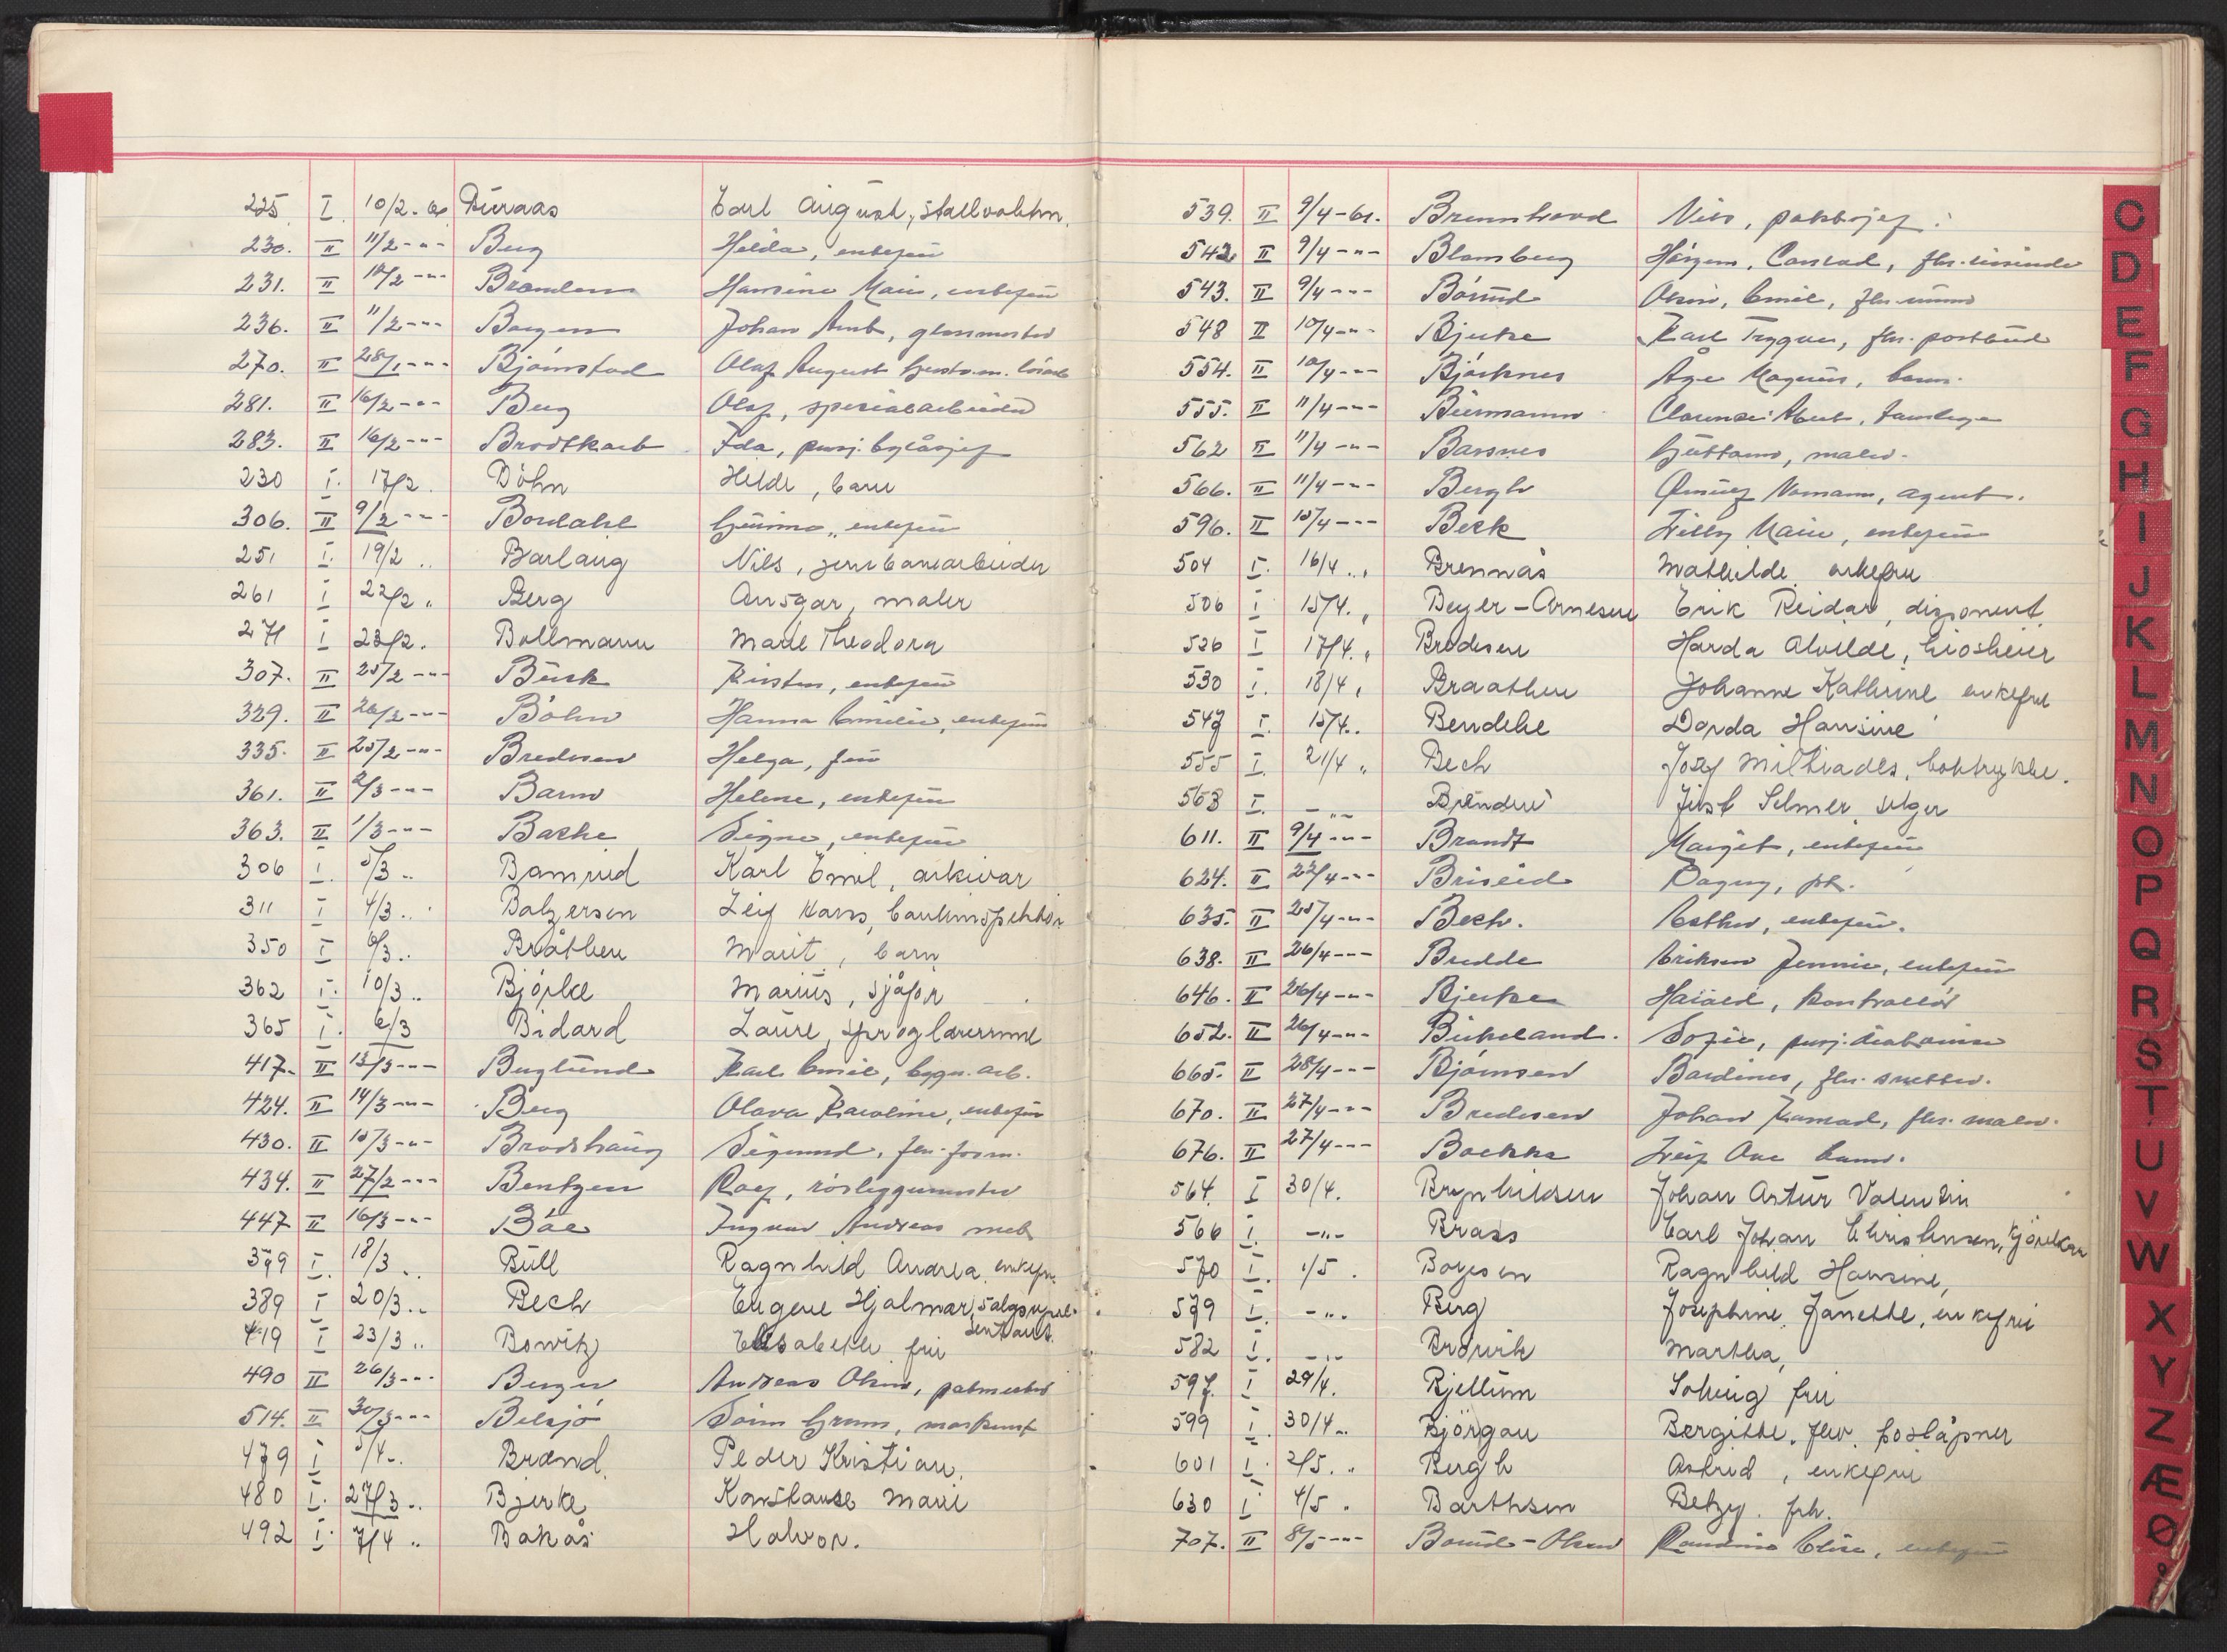 225 I 10/2 - 61 Buraas Carl August, stallvaktm.
230. II 11/2 -"- Berg Helda, enkefru
231. II 10/2 -"- Hansine Marie, enkefru
236. II 11/2 -"- Johan Arnt, glassmester
270. II 28/1 -"- Bjørnstad Olaf August
281. II 16/2 -"- Berg Olaf, spesialarbeider
283. II 16/2 -"- Brodtkorb Ida, pensj.
230 I. 17/2. Döhn Helde, barn
306. II 9/2 -"- Bordahl enkefru
251 I. 19/2 .. Barlaug Nils, jernbanearbeider
261 I 22/2 " Berg Ansgar, maler
271 I 23/2. Bollmann Marie Theodora
307. II 25/2 -"- Busk Kirsten, enkefru
329. II 26/2 -"- Böhn Hanna Emilie, enkefru
335. II 25/2 -"- Bredesen Helga, fru
361. II 2/3 -"- Helene, enkefru
363. II 1/3 -"- Bakke Signe, enkefru
306 I. 5/3 .. Bamrud Karl Emil, arkivar
311 I 4/3 .. Balzersen Leif Hans, bankinspektør
350 I 6/3 .. Bråthen Marit, barn
362 I. 10/3 .. Bjørke Marius, sjåfør
365 I. 6/3 Bidard Laure, språglærerinne
417. II 13/3 -"- Berglund Karl Emil, bygn.arb.
424. II 14/3 -"- Berg Olava Karoline, enkefru
430. II 15/3 -"- Brodshaug Sigurd, fhv. form.
434. II 27/2 -"- Bentzen Roef, rørleggermester
447 II 16/3 -"- Båe Ingvar Andreas
379 I. 18/3 .. Bull Ragnhild Andrea, enkefr.
389 I 20/3 .. Bech Eugene Hjalmar, salgsrepresentant.
419 I 23/3 .. Bowitz Elisabeth fru
490 II 26/3 -"- Berger Andreas Olsen,
514. II 30/3 -"- Belsjø
479 I 5/4 .. Brænd. Peder Kristian.
480 I. 27/3 .. Bjerke Konstanse Marie
492 I. 7/4 .. Bakås Halvor.
539. II 9/4 - 61. Brennhovd Nils,
542 II 9/4 -"- Blomberg Conrad,
543. II 9/4 -"- Børud Emil,
548 II 10/4 -"- Bjerke Karl Trygve, fhv. postbud
554. II 10/4 -"- Bjørknes Åge Magnus, barn.
555. II 11/4 -"- Biermann Clarence Abel, tannlege
562 II 11/4 -"- Barsnes Guttorm, maler.
566. II 11/4 -"- Bergh agent.
596. II 15/4 -"- Bekk Marie, enkefru
504 I. 16/4 .. Brennås Mathilde enkefru
506 I 15/4. " Beyer-Arnesen Erik Reidar, disponent
526 I 17/4. " Bredesen Harda Alvilde,
530 I. 18/4 " Braathen Johanne Kathrine enkefru
547 I. 15/4 .. Bendike Dorda Hansine
555 I. 21/4 " Bech Josef Miltiades, boktrykker.
563 I. -"- Selmer, selger
611. II 9/4 -"- Brandt Margit, enkefru
624. II 22/4 -"- Briseid Dagny, frk.
635. II 25/4 -"- Bech. Esther, enkefru.
638. II 26/4 -"- Bredde Eriksen Jennie, enkefru
646. II 26/4 -"- Bjerke Harald, kontrollør
652. II 26/4 -"- Birkeland. Sofie, pensj. diakonisse
665. II 28/4 -"- Bjørnsen Bardinus, fhv. snekker.
670. II 27/4 -"- Bredesen Johan Konrad, fhv. maler.
676. II 27/4 -"- Leif Ove
564. I 30/4. Brynhildsen Johan Artur Valentin
566 I. -"- Brass Carl Johan Christensen,
570 I. 1/5 . Boyesen Ragnhild Hansine,
579 I. -"- Berg Josephine Janette, enkefru
582 I. -"- Brøvik Martha,
597. I 29/4. Bjellum Solveig fru
599 I. 30/4 .. Bjørgan Bergitte. fhv. poståpner
601 I. 2/5. .. Bergh Astrid, enkefru
630 I 4/5 . Barthsen Betzy. frk.
707. II 8/5 -"- Børud-Olsen enkefru
C
D
E
F
G
H
I
J
K
L
M
N
O
P
Q
R
S
T
U
V
W
X
Y
Z
Æ
Ø
Å